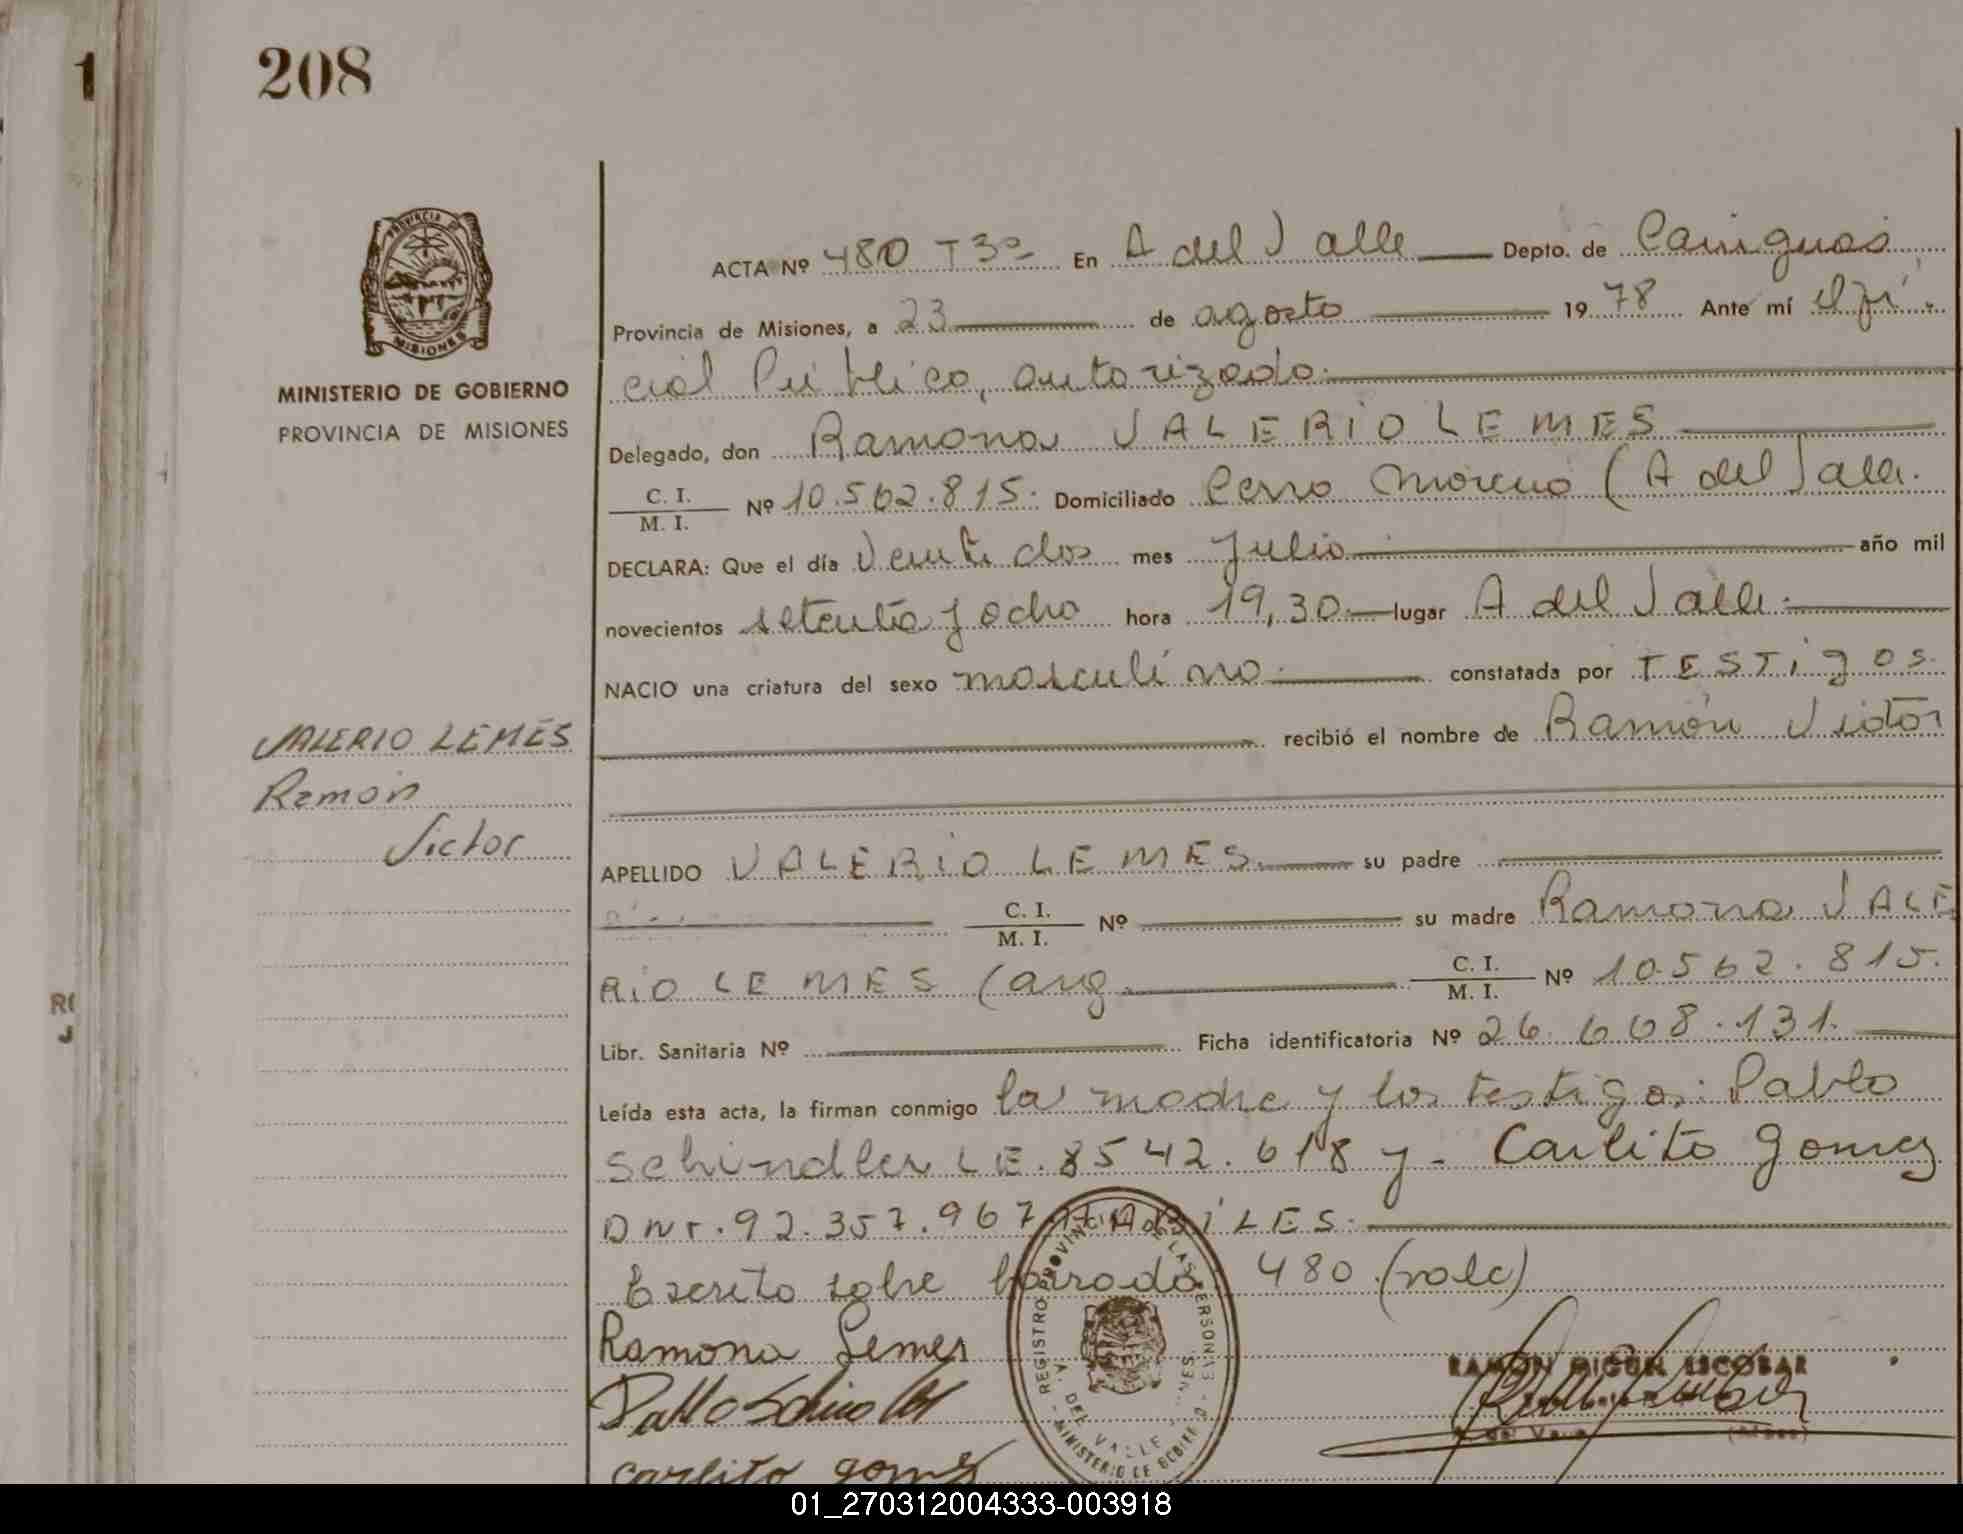 1
208
PROVINCIA DE
MISIONES
MINISTERIO DE GOBIERNO
PROVINCIA DE MISIONES
ACTA Nº 480 T3º En A del Valle Depto. de Cainguas
Provincia de Misiones, a 23 de agosto 1978 Ante mí
cial Público, autorizado.
Delegado, don Ramona VALERIO LEMES
C. I. / M. I. Nº 10.562.815. Domiciliado Cerro Moreno (A del Valle.
DECLARA: Que el día Veinti dos mes Julio año mil
novecientos setenta y ocho hora 19,30 lugar A del Valle.
NACIO una criatura del sexo masculino. constatada por TESTigos.
VALERIO LEMES
recibió el nombre de Ramón Victor
Ramón
Victor
APELLIDO VALERIO LEMES. su padre
C. I. / M. I. Nº su madre Ramona VALE
RIO LEMES (arg. C. I. / M. I. Nº 10.562.815.
RO
J
Libr. Sanitaria Nº Ficha identificatoria Nº 26.608.131.
Leída esta acta, la firman conmigo la madre y los testigos: Pablo
Schindler LE. 8542.618 y - Carlito Gomez
DNI. 92.357.967 HABiLES.
Escrito sobre borrado 480 (vale)
Ramona Lemes
Pablo Schindler
Carlito gomez
REGISTRO PROVINCIAL DE LAS PERSONAS
MINISTERIO DE GOBIERNO
A. DEL VALLE
RAMON MIGUEL ESCOBAR
A. del Valle (Mnes)
01_270312004333-003918